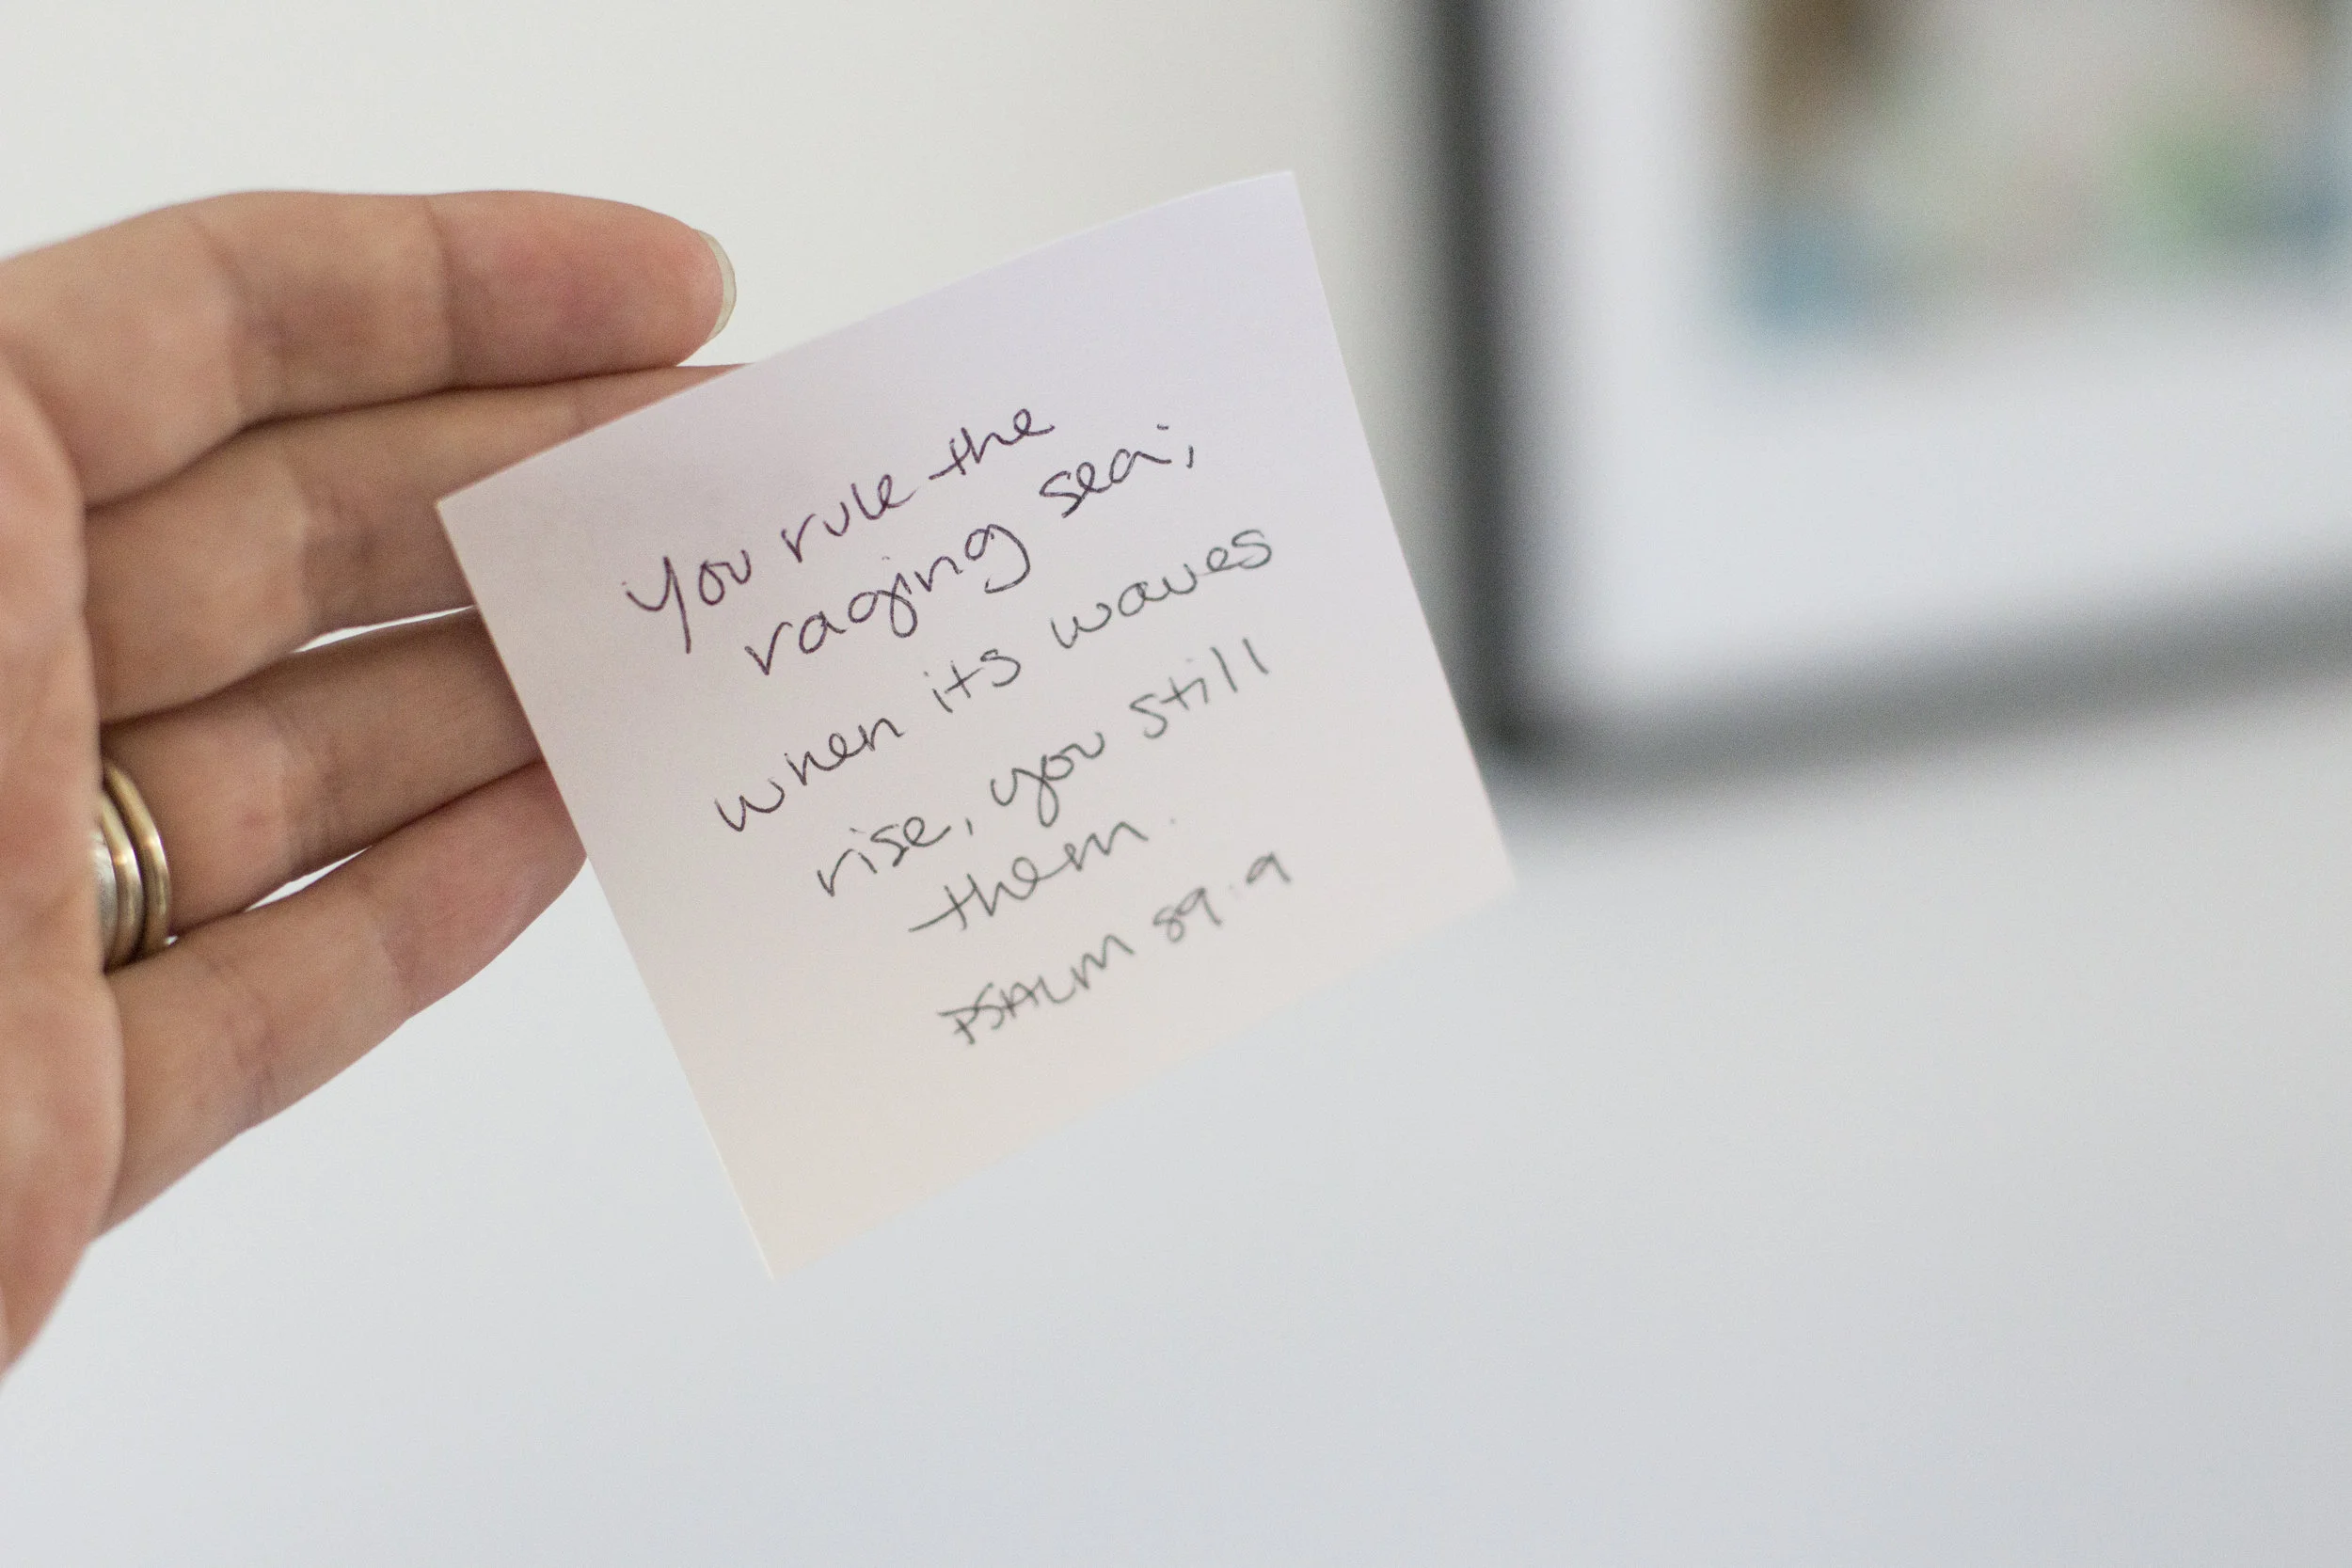 You rule the
raging sea;
when its waves
rise, you still
them.
PSALM 89:9